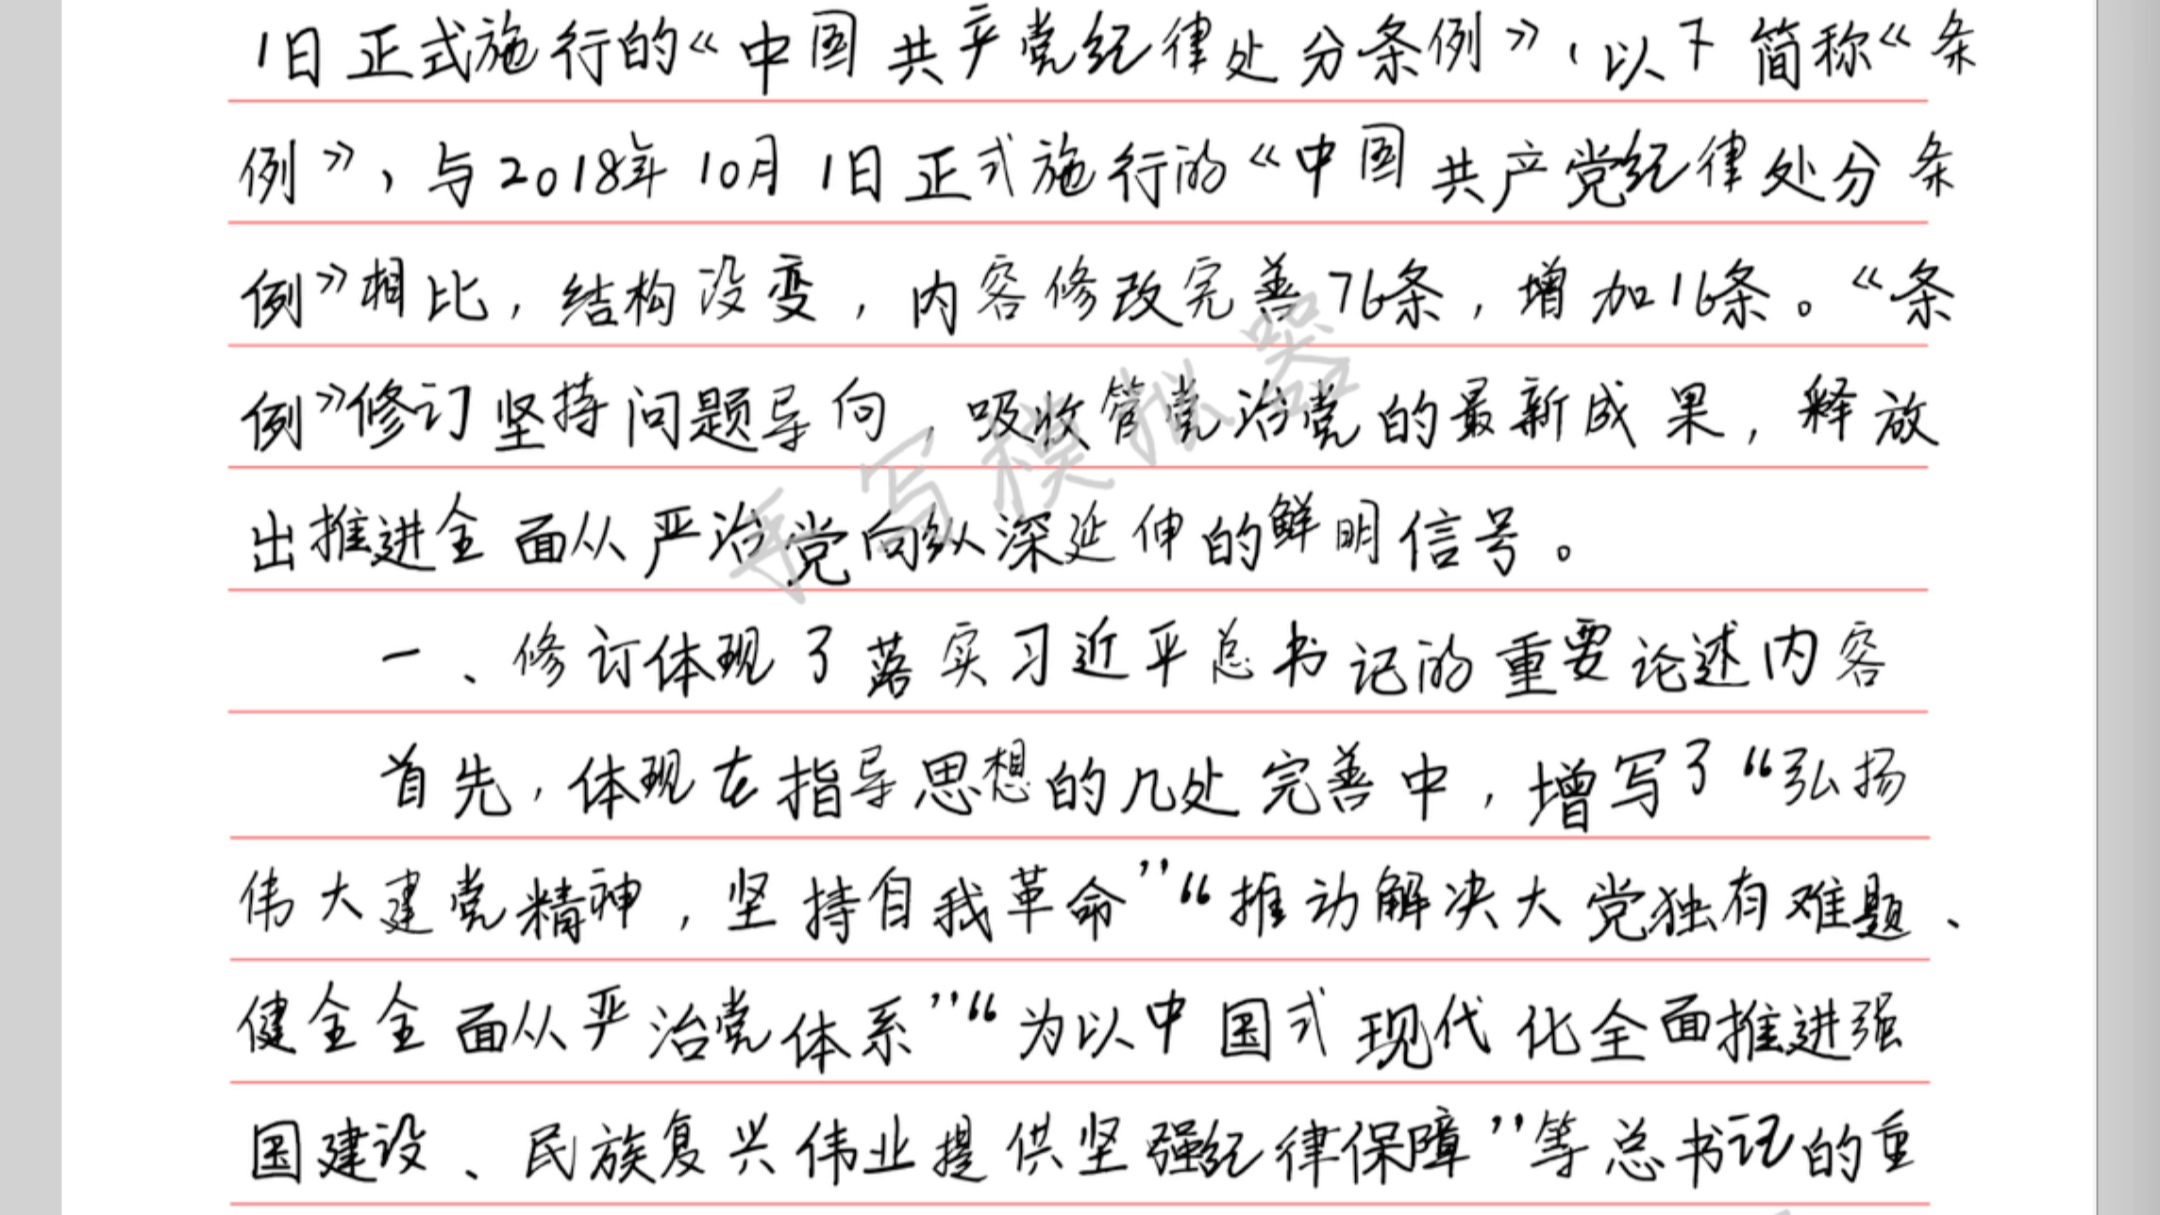 1日正式施行的《中国共产党纪律处分条例》，以下简称《条
例》，与2018年10月1日正式施行的《中国共产党纪律处分条
例》相比，结构没变，内容修改完善76条，增加16条。《条
例》修订坚持问题导向，吸收管党治党的最新成果，释放
出推进全面从严治党向纵深延伸的鲜明信号。
手写模拟器
一、修订体现了落实习近平总书记的重要论述内容
首先，体现在指导思想的几处完善中，增写了“弘扬
伟大建党精神，坚持自我革命”“推动解决大党独有难题、
健全全面从严治党体系”“为以中国式现代化全面推进强
国建设、民族复兴伟业提供坚强纪律保障”等总书记的重